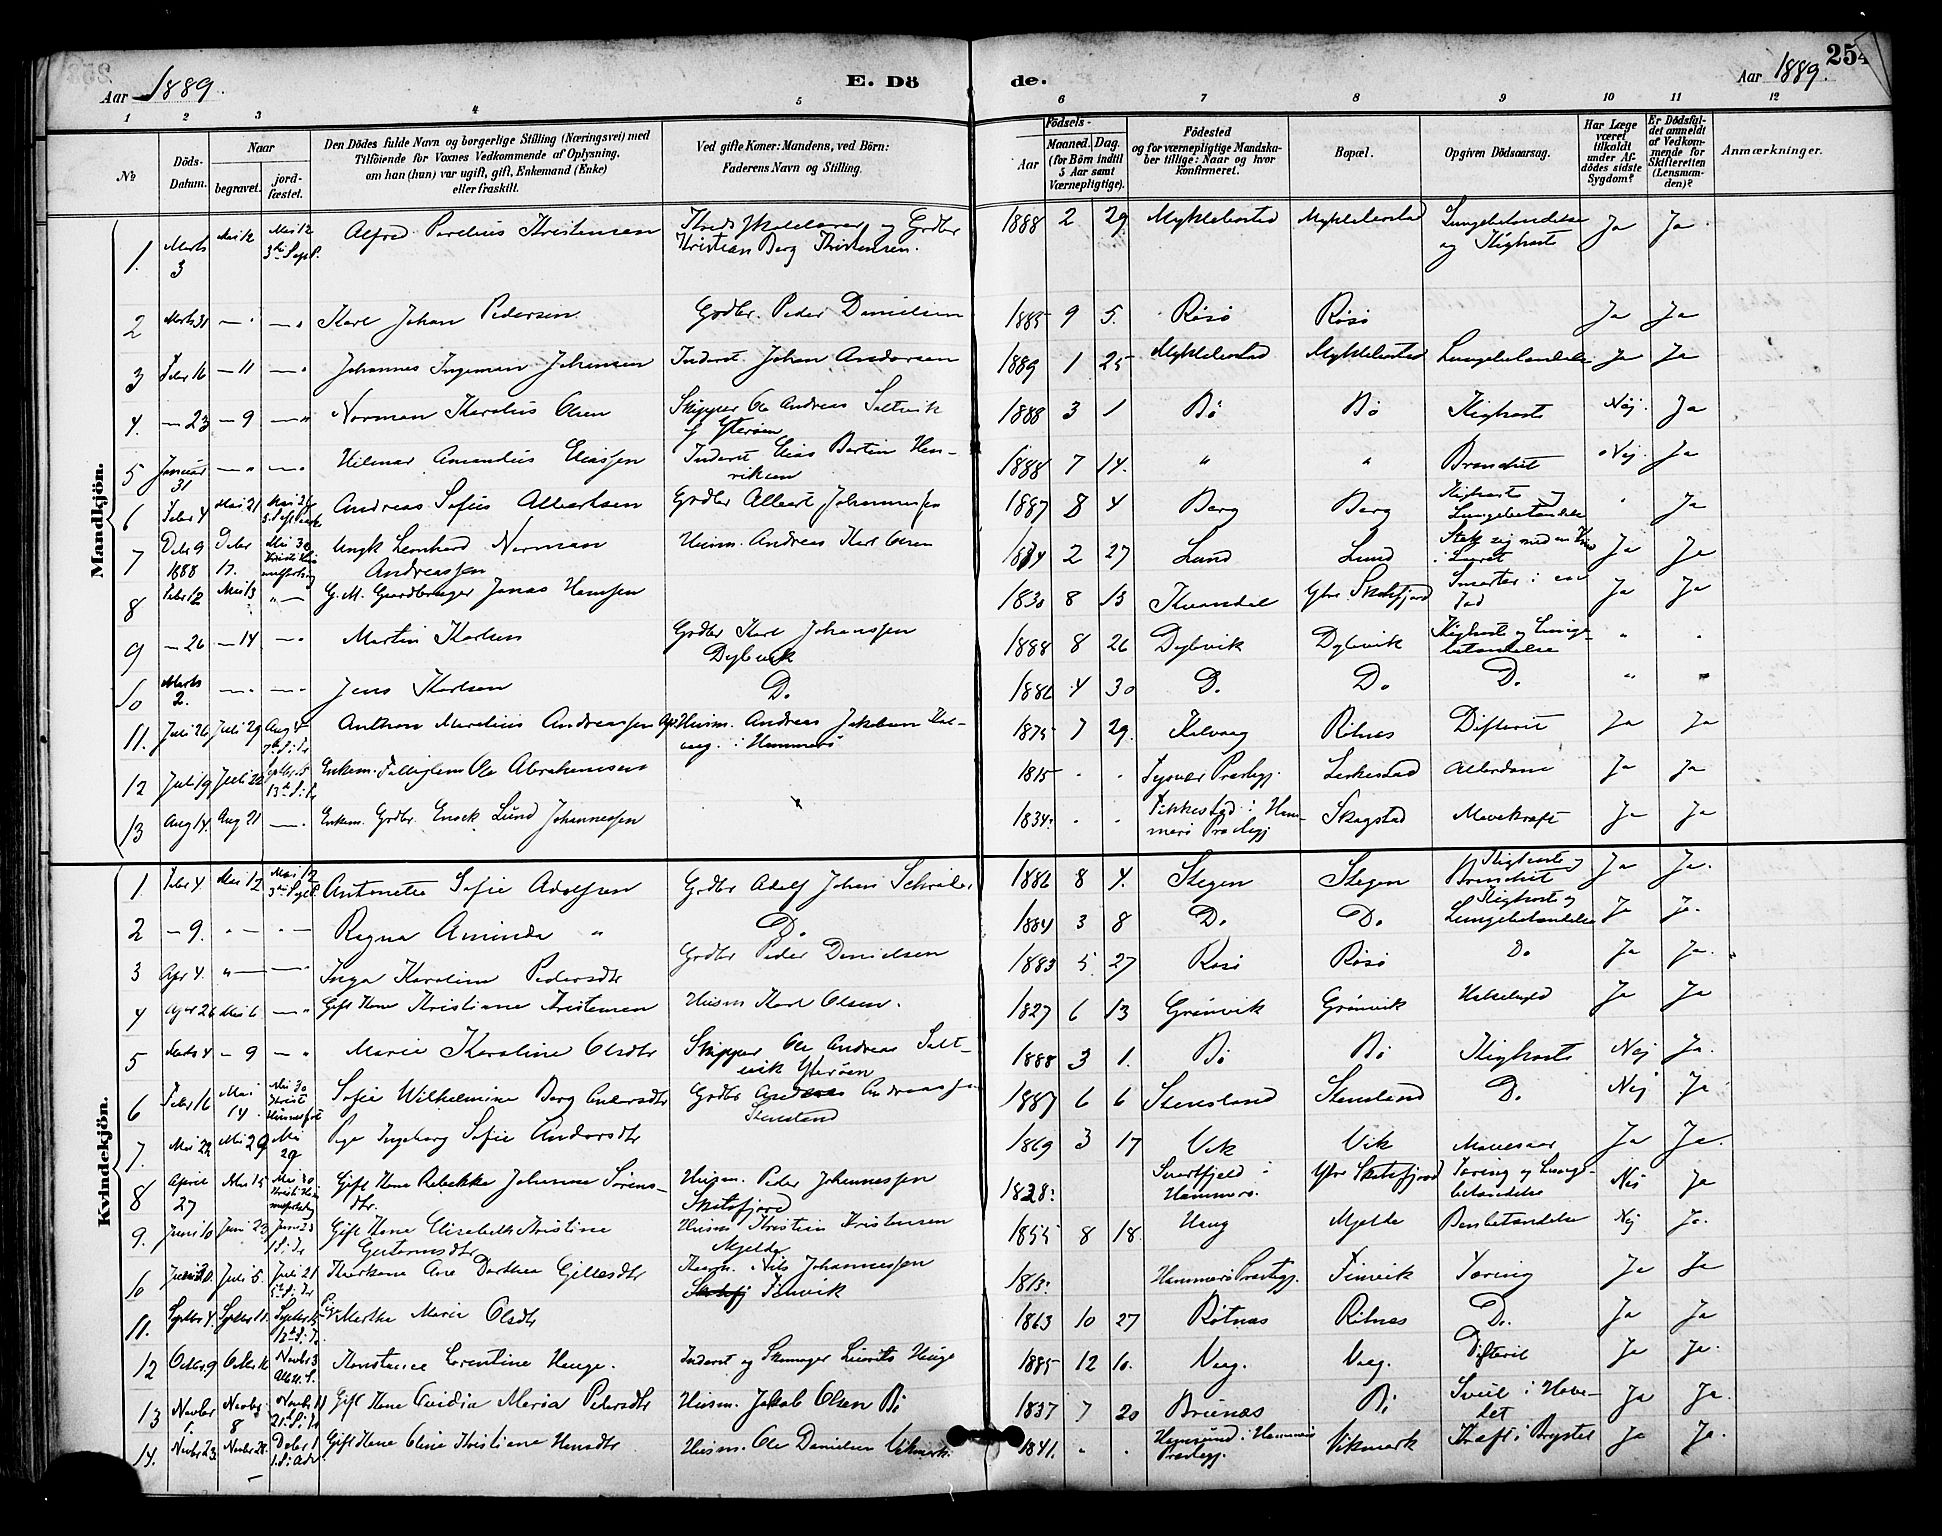 254
Aar 1889. E. Dö de. Aar 1889.
1 2 3 4 5 6 7 8 9 10 11 12
№
Döds-Datum.
Naar
begravet.
jord-fæstet.
Den Dödes fulde Navn og borgerlige Stilling (Næringsvei) med
Tilföiende for Voxnes Vedkommende af Oplysning,
om han (hun) var ugift, gift, Enkemand (Enke)
eller fraskilt.
Ved gifte Koner: Mandens, ved Börn:
Faderens Navn og Stilling.
Födsels-
Aar
Maaned. Dag.
(for Börn indtil
5 Aar samt
Værnepligtige).
Födested
og for værnepligtige Mandska-
ber tillige: Naar og hvor
konfirmeret.
Bopæl.
Opgiven Dödsaarsag.
Har Læge
været
tilkaldt
under Af-
dödes sidste
Sygdom?
Er Dödsfal-
det anmeldt
af Vedkom-
mende for
Skifteretten
(Lensman-
den)?
Anmærkninger.
Mandkjön.
1. Marts 3 Mai 12 Mai 12 Alfred Kristensen og Grdbr Kristian Berg Kristensen. 1888 2 29 Myklebostad Myklebostad Lungebetændelse og Kighoste Ja Ja.
2 Marts 31 — " — " Karl Johan Pedersen Grdbr. Peder Danielsen 1885 9 5. Røsø Røsø Ja Ja
3 Febr 16 — 11 — " Johannes Ingeman Johansen Inderst Johan Andersen 1889 1 25 Myklebostad Myklebostad Lungebetændelse Ja Ja
4. — 23 — 9 — " Norman Karolius Olsen Skipper Ole Andreas Saltvik Yterøen 1888 3 1 Bø Bø Kighoste Nej Ja
5 Januar 31 — " — " Hilmar Amandus Eliassen Inderst Elias Bertin Hen-riksen 1888 7 14. " " Bronchit Nej. Ja
6 Febr 4 Mai 21 Andreas Sofus Albertsen Grdbr Albert Johannessen 1887 8 4 Berg Berg Kighoste og Lungebetændelse " Ja
7 Debr 9 1888 Debr 17. Mai 30 Leonhard Norman Andreassen Husm. Andreas Karl Olsen 2 27 Lund Lund Stak sig med en Kniv i Laaret Ja Ja
8 Febr 12 Mai 13 " — G. M. Gaardbruger Jonas Hansen 1830 8 13 Kvandal Ytre Skotsfjord Smerter i Ja Ja
9 — 26 — 14 — " Martin Karlsen Grdbr Karl Johanssen Dybvik 1888 8 26 Dybvik Dybvik Kighoste og Lunge-betændelse " "
10 Marts 2. — " — " Jens Karlsen Do 4 30 Do Do Do " "
11. Juli 26 Juli 29 Aug 4 Anthon Marelius Andreassen Husm. Andreas Jakobsen Kal-vaag i Hammerø 1875 7 29. Kalvaag Rotnes Difterit Ja Ja
12 Juli 19 Juli 22 Enkem. Ole Abrahamsen 1815 . . Tysvær Præstegj. Leikestad Alderdom Ja Ja
13 Aug 14. Aug 21 — " Enkem. Grdbr. Enock Lund Johannessen 1834. . . i Ham-merø Præstegj Skagstad Mavekræft Ja Ja
Kvindekjön.
1 Febr 4 Mai 12 Mai 12 Antonette Sofie Adolfsen Grdbr Adolf Johan Schrøder 1886 8 4. Stegen Stegen Kighoste og Bronchit Ja Ja.
2 — 9. " — " — Ragna Aminda " Do 1884 3 8 Do Do Kighoste og Lungebetændelse Ja Ja.
3 Apr 4. " — — " Inga Karoline Pedersdtr Grdbr Peder Danielsen 1883 5 27 Røsø Røsø Do Ja Ja.
4 Apr 26 Mai 6 — " Gift Kone Kristiane Kristensen Husm Karl Olsen. 1827 6 13 Grønvik Grønvik Ja Ja
5 Marts 4 — 9 — " Marie Karoline Olsdtr Skipper Ole Andreas Salt-vik Yterøen 1888 3 1. Bø Bø Kighoste Nej Ja.
6 Febr 16 Mai 14 Mai 30 Sofie Wilhelmine Berg Andersdtr Grdbr Andreas Andreassen Stensland 1887 6 6 Stensland Stensland Do. Nej Ja
7. Mai 22 Mai 29 Mai 29 Pige Ingeborg Sofie Andersdtr 1869 3 17 Vik Vik Mavesaar Ja Ja.
8 April 27 Mai 15 Mai 30 Gift Kone Rebekka Johanna Sørens-dtr. Husm. Peder Johannessen Skotsfjord 1828. Svartfjeld i Hammerø. Ytre Skotsfjord Tæring og Lunge-betændelse Nei Ja
9. Juni 10 Juni 23 Juni 23 Gift Kone Elisabeth Kristine Guttormsdtr Husm Kristian Kristensen Mjelde 1855 8 18. Haug Mjelde Benbetændelse Nej Ja.
10 Juni 30. Juli 5. Juli 21 Ane Dorthea Gjellesdtr Nils Johannessen Finvik 1813. Hammerø Præstegj. Finvik Tæring Ja Ja
11. Septbr 4. Septbr 11. Septbr 15 Pige Marthe Marie Olsdtr 1863 10 27 Rotnes Rotnes Do. Ja Ja
12 Octbr 9 Octbr 16 Novbr 3 Konstance Lorentine Hauge. Inderst og Skomager Lauritz Hauge 1885 12 10. Vaag. Vaag. Difterit Ja Ja.
13 Novbr 1. Novbr. 8 Novbr 10 Gift Kone Ovidia Maria Pedersdtr Husm. Jakob Olsen Bø 1837 7 20 Brunæs Bø Svul i Hove-det Ja Ja.
14. Novbr 23. Novbr 28. Debr 1 Gift Kone Oline Kristiane Hansdtr Husm. Ole Danielsen Vikmark. 1841. " . Hamsund i Hammerø Præstegj. Vikmark Kræft i Brystet Ja Ja.